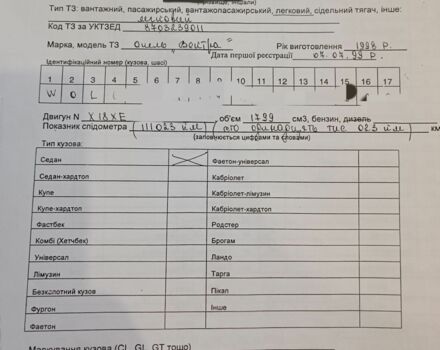 Тип ТЗ: вантажний, пасажирський, вантажопасажирський, легковий, сідельний тягач, інше:
легковий
Код ТЗ за УКТЗЕД 8703239011
Марка, модель ТЗ опель "Вектра" Рік виготовлення 1998 р.
Дата першої реєстрації 07.07.99 р.
Ідентифікаційний номер (кузова, шасі)
1 2 3 4 5 6 7 8 9 10 11 12 13 14 15 16 17
W 0 L
Двигун N X18XE, об'єм 1799 см3, бензин, дизель
Показник спідометра (111023 км) (сто одинадцять тис 023 км) км
(заповнюється цифрами та словами)
Тип кузова:
Седан Фаетон-універсал
Седан-хардтоп Кабріолет
Купе Кабріолет-лімузин
Купе-хардтоп Кабріолет-хардтоп
Фастбек Родстер
Комбі (Хетчбек) Брогам
Універсал Ландо
Лімузин Тарга
Безкапотний кузов Пікап
Фургон Інше
Фаетон
Маркування кузова (CL, GL, GT тощо)